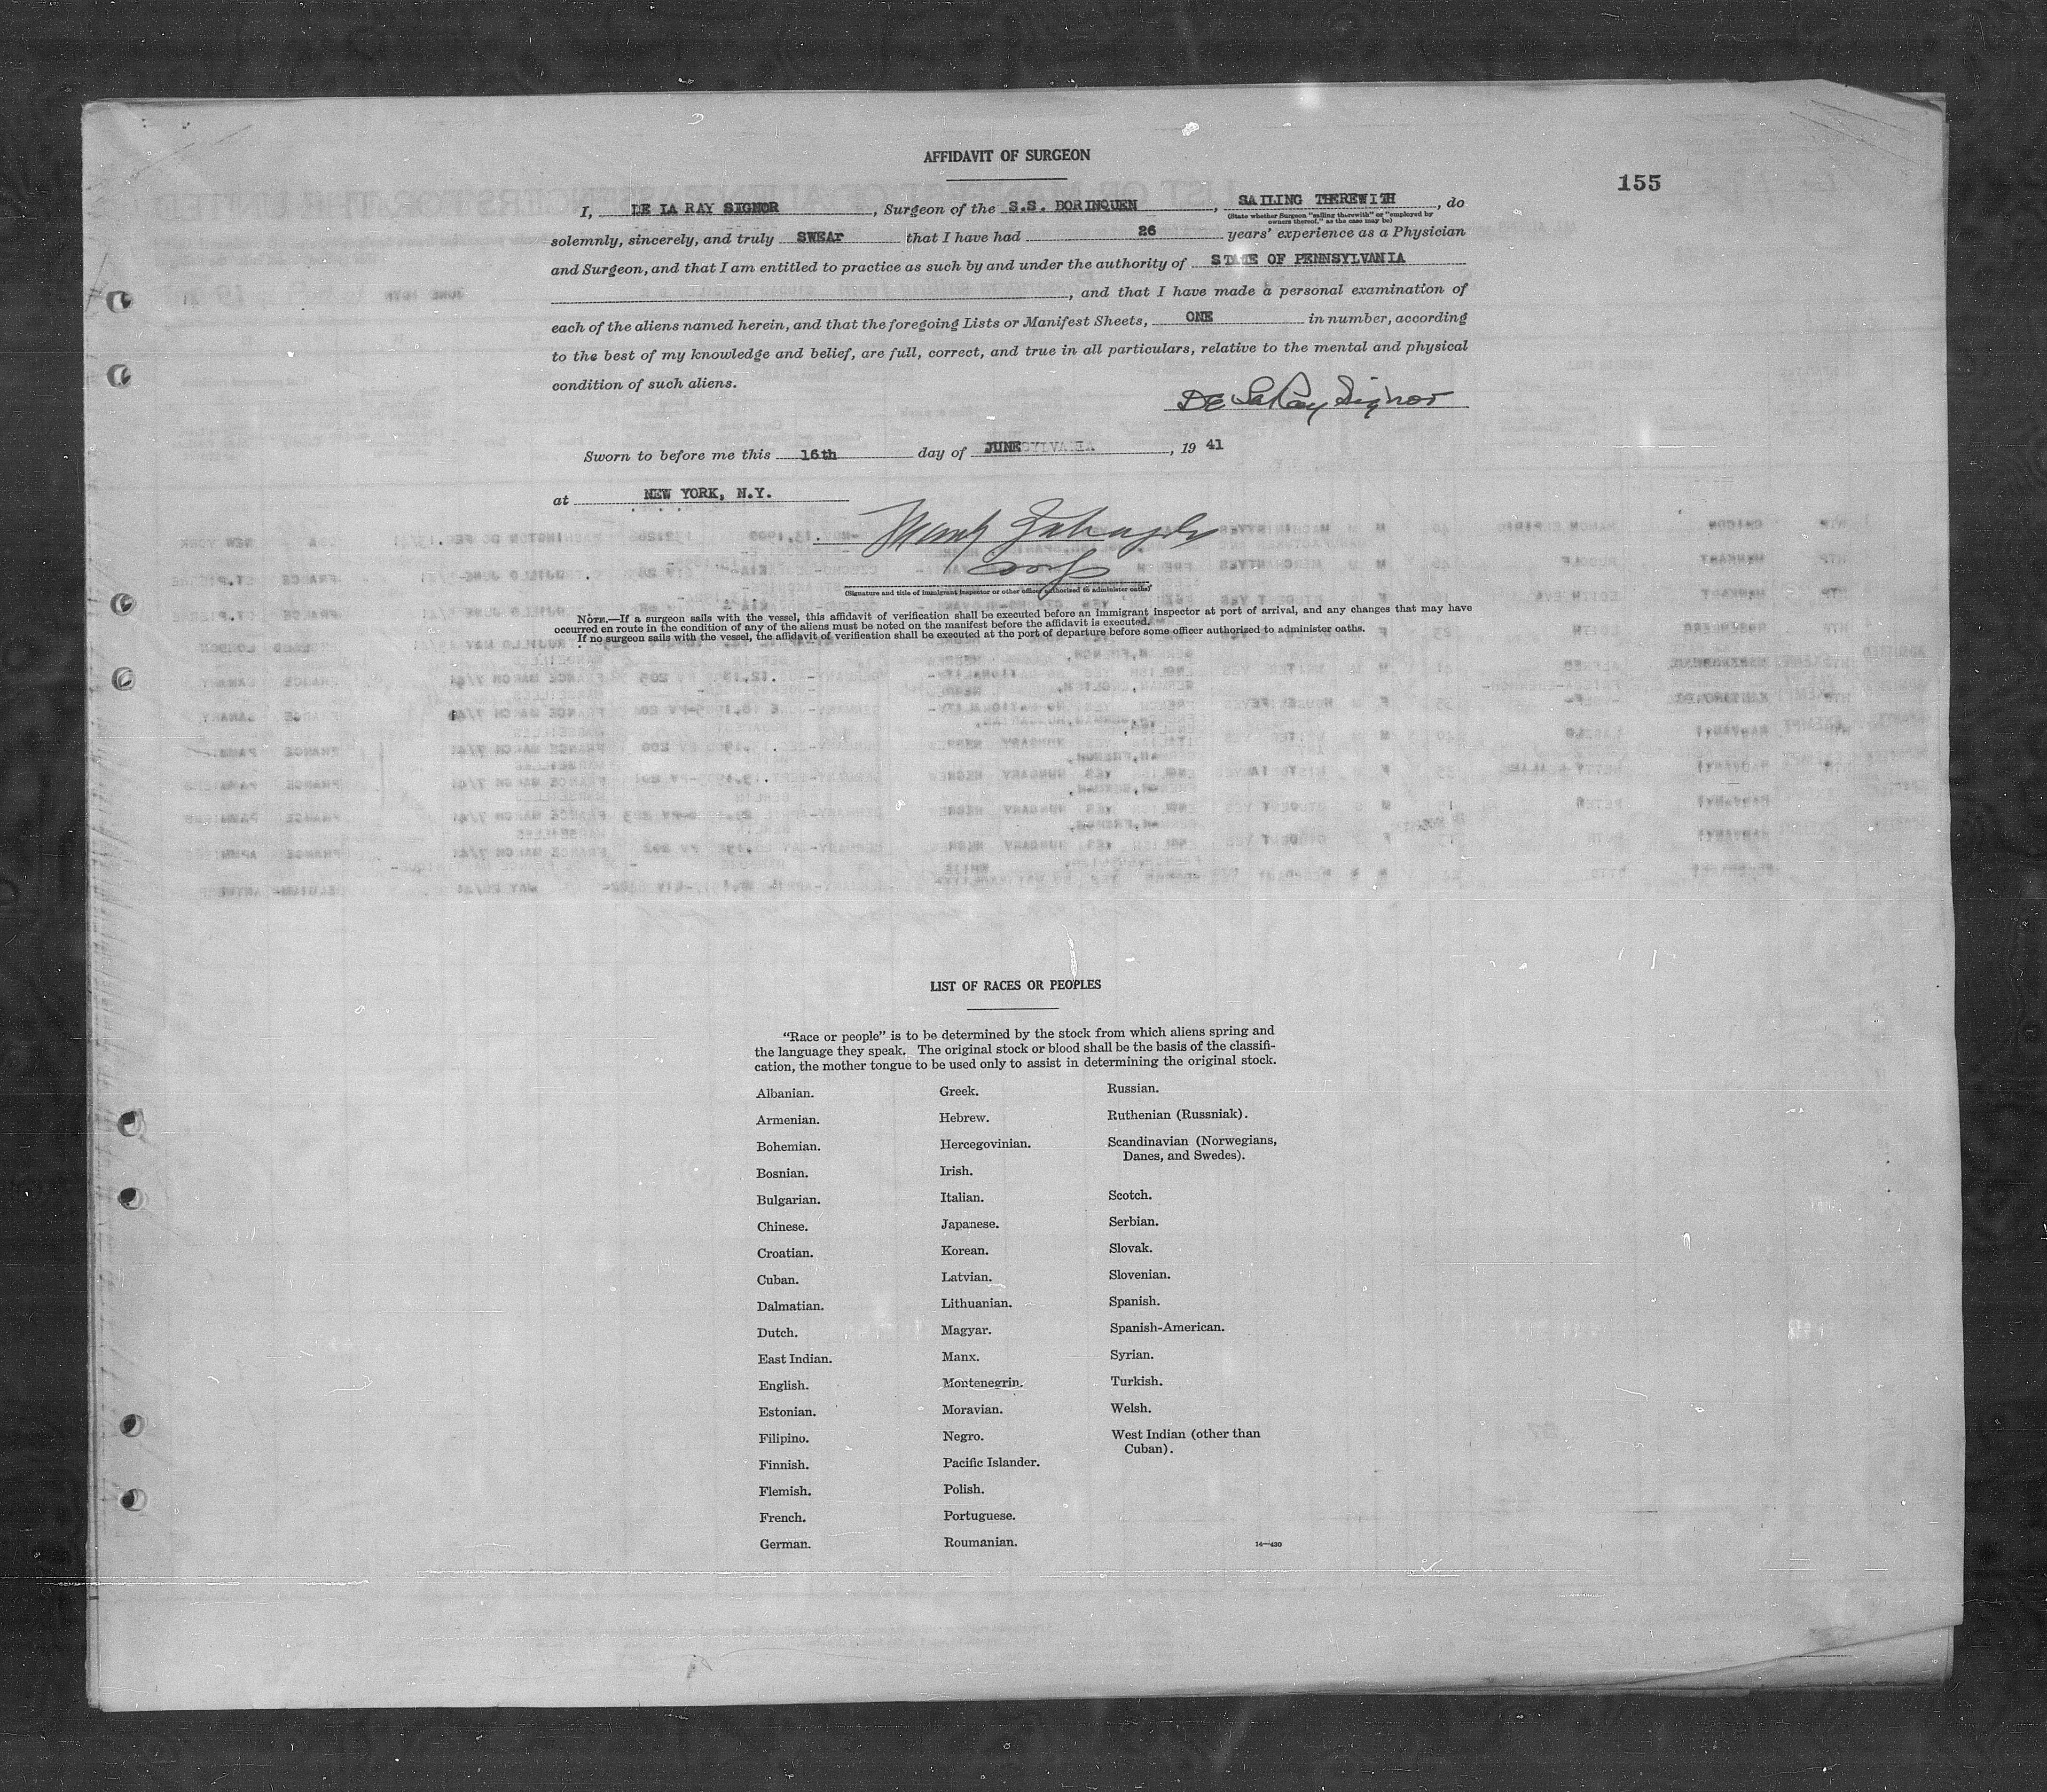 AFFIDAVIT OF SURGEON
155
I, DE LA RAY SIGNOR, Surgeon of the S.S. BORINQUEN, SAILING THEREWITH, do
(State whether Surgeon "sailing therewith" or "employed by
owners thereof," as the case may be)
solemnly, sincerely, and truly SWEAr that I have had 26 years' experience as a Physician
and Surgeon, and that I am entitled to practice as such by and under the authority of STATE OF PENNSYLVANIA
, and that I have made a personal examination of
each of the aliens named herein, and that the foregoing Lists or Manifest Sheets, ONE in number, according
to the best of my knowledge and belief, are full, correct, and true in all particulars, relative to the mental and physical
condition of such aliens.
De LaRay Signor
Sworn to before me this 16th day of JUNE, 19 41
at NEW YORK, N.Y.
(Signature and title of immigrant inspector or other officer authorized to administer oaths)
NOTE.—If a surgeon sails with the vessel, this affidavit of verification shall be executed before an immigrant inspector at port of arrival, and any changes that may have
occurred en route in the condition of any of the aliens must be noted on the manifest before the affidavit is executed.
If no surgeon sails with the vessel, the affidavit of verification shall be executed at the port of departure before some officer authorized to administer oaths.
LIST OF RACES OR PEOPLES
"Race or people" is to be determined by the stock from which aliens spring and
the language they speak. The original stock or blood shall be the basis of the classifi-
cation, the mother tongue to be used only to assist in determining the original stock.
Albanian.
Armenian.
Bohemian.
Bosnian.
Bulgarian.
Chinese.
Croatian.
Cuban.
Dalmatian.
Dutch.
East Indian.
English.
Estonian.
Filipino.
Finnish.
Flemish.
French.
German.
Greek.
Hebrew.
Hercegovinian.
Irish.
Italian.
Japanese.
Korean.
Latvian.
Lithuanian.
Magyar.
Manx.
Montenegrin.
Moravian.
Negro.
Pacific Islander.
Polish.
Portuguese.
Roumanian.
Russian.
Ruthenian (Russniak).
Scandinavian (Norwegians,
Danes, and Swedes).
Scotch.
Serbian.
Slovak.
Slovenian.
Spanish.
Spanish-American.
Syrian.
Turkish.
Welsh.
West Indian (other than
Cuban).
14—430